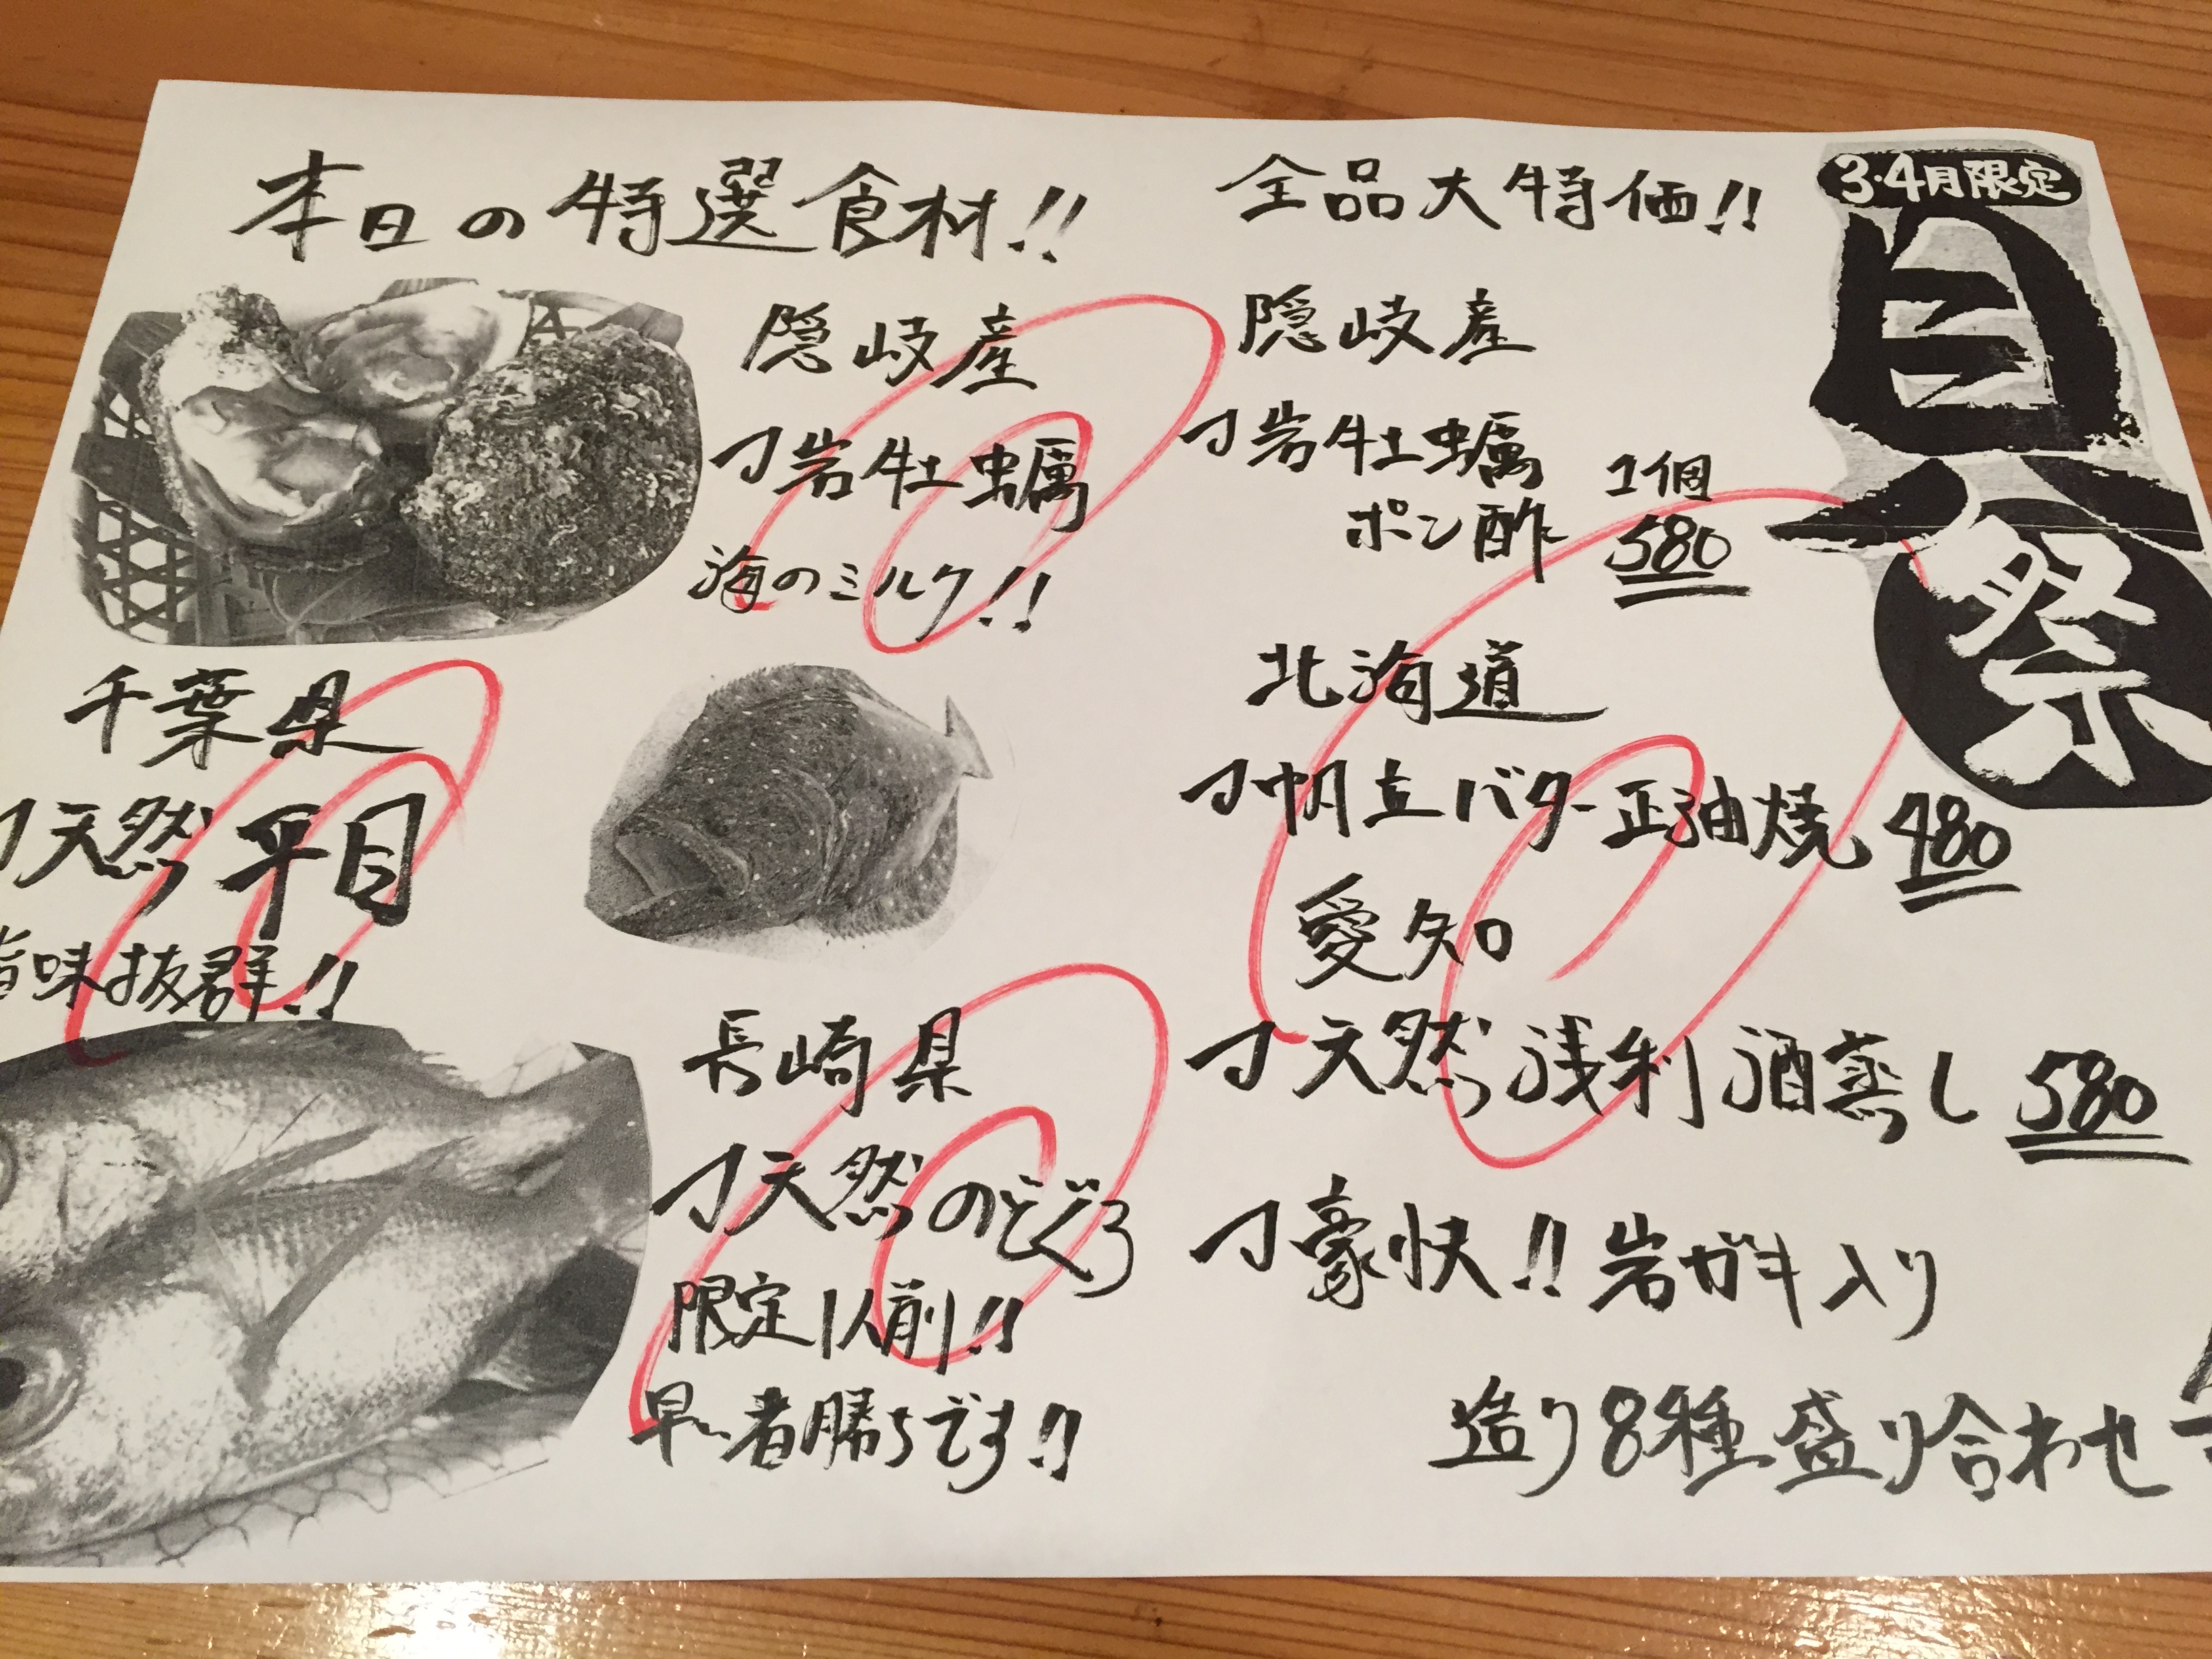 本日の特選食材!!
隠岐産
岩牡蠣
海のミルク!!
千葉県
天然平目
旨味抜群!!
長崎県
天然のどぐろ
限定1人前!!
早い者勝ちです!!
全品大特価!!
隠岐産
岩牡蠣
ポン酢 1個 580
北海道
帆立バター正油焼 480
愛知
天然浅利酒蒸し 580
豪快!!岩ガキ入り
造り8種盛り合わせ
3·4月限定
貝祭